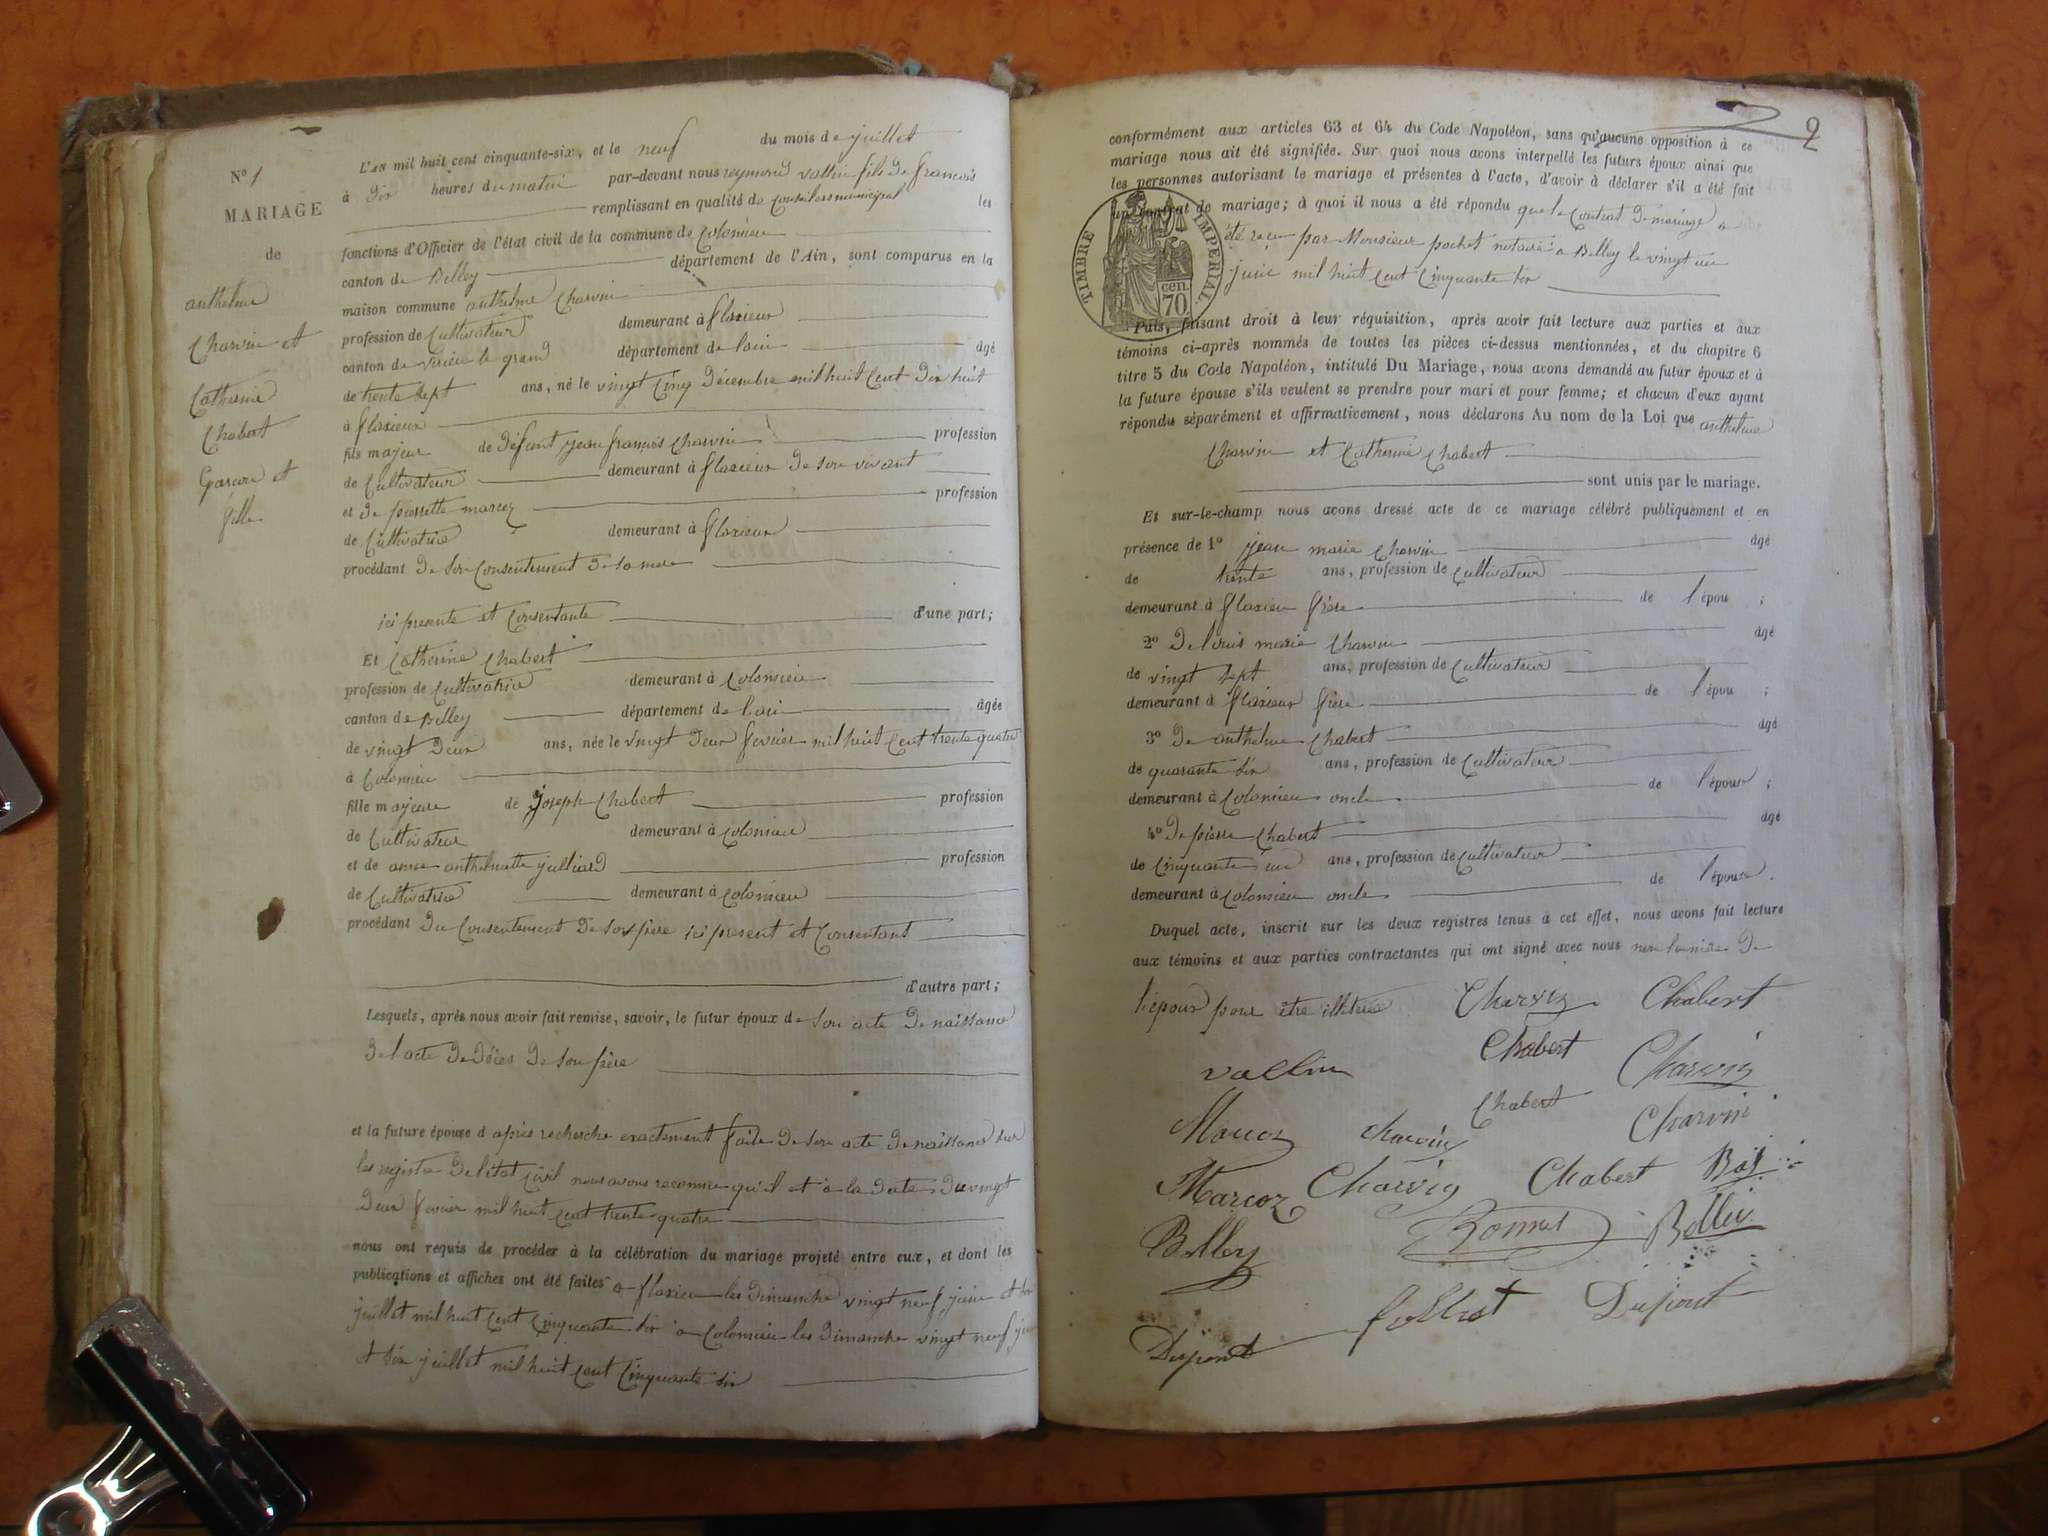 N° 1
MARIAGE
de
anthelme
Charvin et
Catherine
Chabert
Garcon et
fille
L'AN mil huit cent cinquante-six, et le neuf du mois de juillet
à dix heures du matin par-devant nous reymond vallin fils de francois
remplissant en qualité de Conseiller municipal les
fonctions d'Officier de l'état civil de la commune de Colomieu
canton de Belley département de l'Ain, sont comparus en la
maison commune anthelme Charvin
profession de Cultivateur demeurant à flaxieur
canton de virieu le grand département de lain âgé
de trente sept ans, né le vingt Cinq Décembre mil huit Cent Dix huit
à flaxieur
fils majeur de défunt jean francois Charvin profession
de Cultivateur demeurant à flaxieur de son vivant
et de pierrette marcoz profession
de Cultivatrice demeurant à flaxieur
procédant de son Consentement de sa mere
ici presente et Consentante d'une part;
Et Catherine Chabert
profession de Cultivatrice demeurant à Colomieu
canton de Belley département de lain âgée
de vingt deux ans, née le vingt deux fevrier mil huit Cent trente quatre
à Colomieu
fille majeure de joseph Chabert profession
de Cultivateur demeurant à Colomieu
et de anthelmette julliard profession
de Cultivatrice demeurant à Colomieu
procédant du Consentement de son père ici present et Consentant
d'autre part;
Lesquels, après nous avoir fait remise, savoir, le futur époux de son acte de naissance
de l'acte de décès de son père
et la future épouse d après recherche exactement faite de son acte de naissance sur
les registre de l'état Civil nous avons reconnu qu'il et a la date du vingt
deux fevrier mil huit Cent trente quatre
nous ont requis de procéder à la célébration du mariage projeté entre eux, et dont les
publications et affiches ont été faites a flaxieu les dimanche vingt neuf juin et six
juillet mil huit Cent Cinquante six a Colomieu les dimanche vingt neuf juin
et six juillet mil huit Cent Cinquante six
2
conformément aux articles 63 et 64 du Code Napoléon, sans qu'aucune opposition à ce
mariage nous ait été signifiée. Sur quoi nous avons interpellé les futurs époux ainsi que
les personnes autorisant le mariage et présentes à l'acte, d'avoir à déclarer s'il a été fait
un contrat de mariage; à quoi il nous a été répondu que le Contrat de mariage a
été reçu par Monsieur pochet notaire a Belley le vingt un
juin mil huit Cent Cinquante six
TIMBRE IMPERIAL.
70 cen.
Puis, faisant droit à leur réquisition, après avoir fait lecture aux parties et aux
témoins ci-après nommés de toutes les pièces ci-dessus mentionnées, et du chapitre 6
titre 5 du Code Napoléon, intitulé Du Mariage, nous avons demandé au futur époux et à
la future épouse s'ils veulent se prendre pour mari et pour femme; et chacun d'eux ayant
répondu séparément et affirmativement, nous déclarons Au nom de la Loi que anthelme
Charvin et Catherine Chabert
sont unis par le mariage.
Et sur-le-champ nous avons dressé acte de ce mariage célébré publiquement et en
présence de 1° jean marie Charvin âgé
de trente ans, profession de Cultivateur
demeurant à flaxieu frère de l'épou ;
2° de louis marie Charvin âgé
de vingt sept ans, profession de Cultivateur
demeurant à flaxieur frère de l'épou ;
3° de anthelme Chabert âgé
de quarante six ans, profession de Cultivateur
demeurant à Colomieu oncle de l'épouse ;
4° de pierre Chabert âgé
de Cinquante un ans, profession de Cultivateur
demeurant à Colomieu oncle de l'épouse .
Duquel acte, inscrit sur les deux registres tenus à cet effet, nous avons fait lecture
aux témoins et aux parties contractantes qui ont signé avec nous non la mère de
l'épour pour être illitérée Charvin Chabert
vallin Chabert Charvin
Marcoz Charvin Chabert Charvin
Marcoz Charvin Chabert
Belley Bonnet
Dupont Dupont